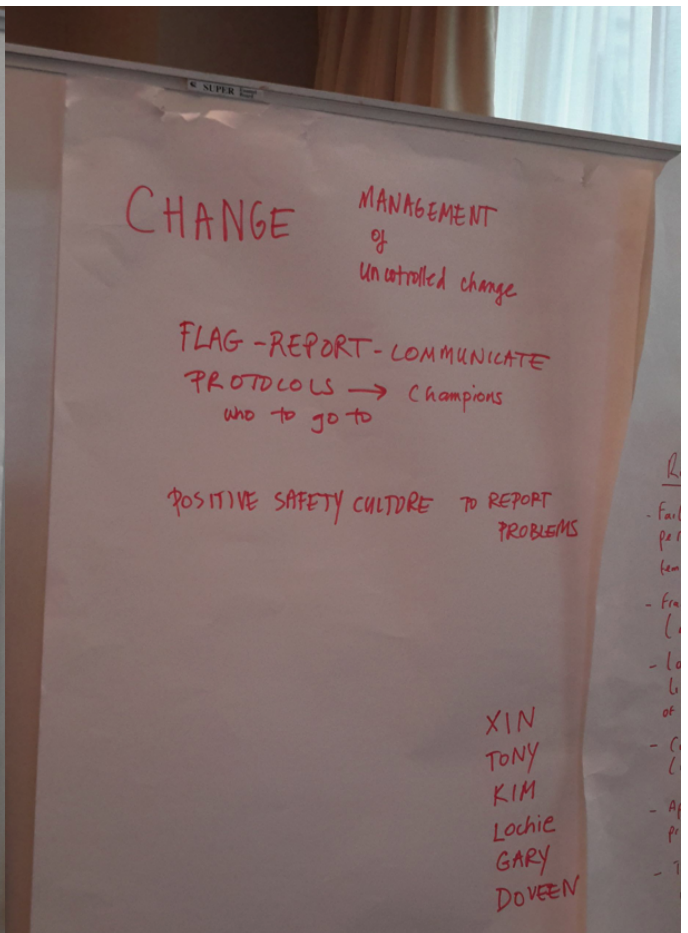 SUPER
CHANGE
MANAGEMENT
of
uncotrolled change
FLAG - REPORT - COMMUNICATE
PROTOCOLS → Champions
who to go to
POSITIVE SAFETY CULTURE TO REPORT
PROBLEMS
XIN
TONY
KIM
Lochie
GARY
DOVEEN
of